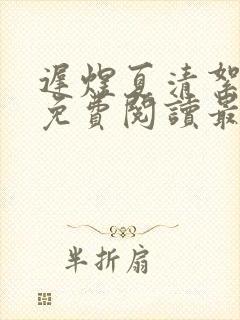 遲煌夏清絮
免費閱讀最
半折扇